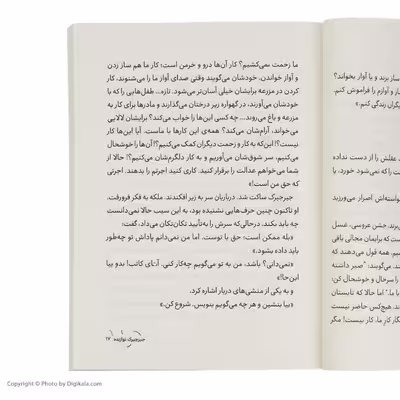 ساز بزند و یا آواز بخواند؟
و آوازم را فراموش کنم.
دیگران زندگی کنم.»
عقلش را از دست نداده
را که نمی‌شود خورد، یا
اصرار می‌ورزید
جشن عروسی، غسل
که برایمان مجالی باقی
همه قول می‌دهند که
می‌گویند: "صبر داشته
را سرحال و خوشحال کن؛
ما." اما حالا که تابستان
هیچ‌کس حاضر نیست
کارِ ما، کار نیست! مگر
ما زحمت نمی‌کشیم؟ کار آن‌ها درو و خرمن است؛ کار ما هم ساز زدن
و آواز خواندن. خودشان می‌گویند وقتی صدای آواز ما را می‌شنوند، کار
کردن در مزرعه برایشان خیلی آسان‌تر می‌شود. تازه... طفل‌هایی را که با
خودشان می‌آورند، در گهواره زیر درختان می‌گذارند و مادرها برای کار به
مزرعه و باغ می‌روند... چه کسی این‌ها را خواب می‌کند؟ برایشان لالایی
می‌خواند، آرام‌شان می‌کند؟ همه‌ی این کارها با ماست. آیا این‌ها کار
نیست؟! این‌که به کار و زحمت دیگران کمک می‌کنیم؟! آن‌ها را خوشحال
می‌کنیم، سر شوق‌شان می‌آوریم و به کار دلگرم‌شان می‌کنیم؟! حالا از
شما می‌خواهم عدالت را برقرار کنید. کاری کنید اجرتم را بدهند. اجرتی
که حق من است!»
جیرجیرک ساکت شد. درباریان سر به زیر افکندند. ملکه به فکر فرورفت.
او تاکنون چنین حرف‌هایی نشنیده بود، به این سبب حالا نمی‌دانست
چه باید بکند. درحالی‌که سرش را به‌تأیید تکان‌تکان می‌داد، گفت:
«بله ممکن است؛ حق با توست. اما من نمی‌دانم پاداش تو چه‌طور
باید داده بشود.»
«نمی‌دانی؟ باشد، من به تو می‌گویم چه‌کار کنی. آی کاتب! بدو بیا
این‌جا!»
و به یکی از منشی‌های دربار اشاره کرد.
«بیا بنشین و هر چه می‌گویم بنویس. شروع کن.»
جیرجیرک نوازنده ۱۷
Copyright © Photo by Digikala.com